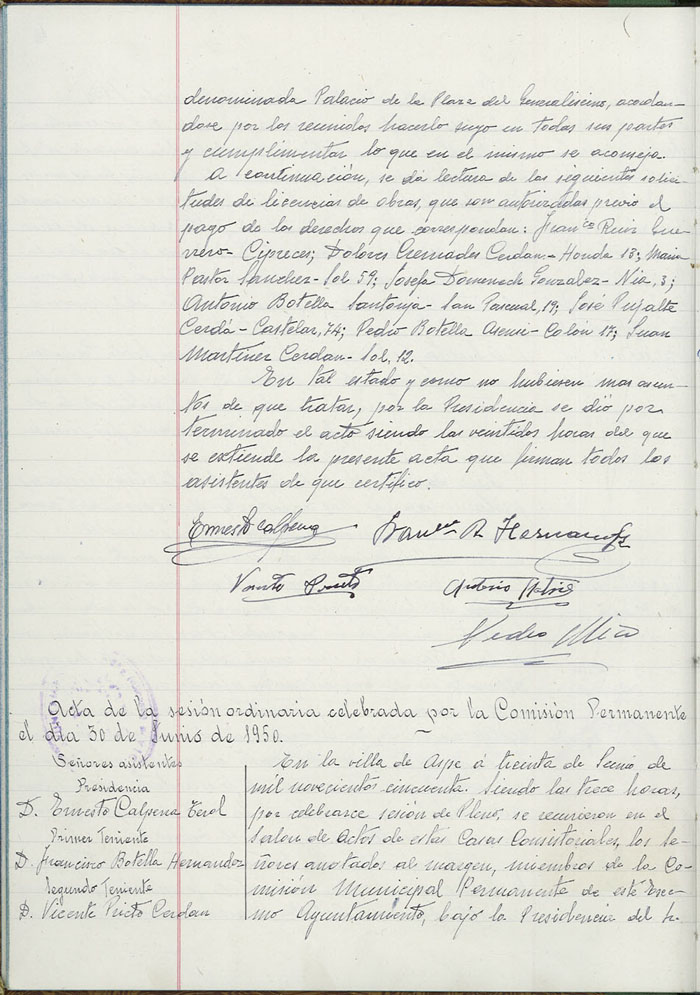 denominada Palacio de la Plaza del Generalísimo, acordan-
dose por los reunidos hacerlo suyo en todas sus partes
y cumplimentar lo que en el mismo se aconseja.
A continuación, se dá lectura de las siguientes solici-
tudes de licencias de obras, que son autorizadas previo el
pago de los derechos que correspondan: Franco Ruiz Gue-
rrero- Cipreces; Dolores Cremades Cerdan- Honda 13; Maria
Pastor Sanchez- Sol 59; Josefa Domenech Gonzalez- Nia, 3;
Antonio Botella Santonja- San Pascual, 19; José Pujalte
Cerdá- Castelar, 74; Pedro Botella Asensi- Colón 17; Juan
Martinez Cerdan- Sol, 12.
En tal estado y como no hubiesen mas asun-
tos de que tratar, por la Presidencia se dió por
terminado el acto siendo las veintidos horas del que
se extiende la presente acta que firman todos los
asistentes de que certifico.
Ernesto Calpena
Hernandez
Vicente Prieto
Antonio
Pedro
Acta de la sesión ordinaria celebrada por la Comisión Permanente
el dia 30 de Junio de 1950.
Señores asistentes
Presidencia
D. Ernesto Calpena Terol
Primer Teniente
D. Francisco Botella Hernandez
Segundo Teniente
D. Vicente Prieto Cerdan
En la villa de Aspe á treinta de Junio de
mil novecientos cincuenta. Siendo las trece horas,
por celebrarse sesión de Pleno, se reunieron en el
Salon de Actos de estas Casas Consistoriales, los Se-
ñores anotados al margen, miembros de la Co-
misión Municipal Permanente de este Exce-
mo Ayuntamiento, bajo la Presidencia del S.